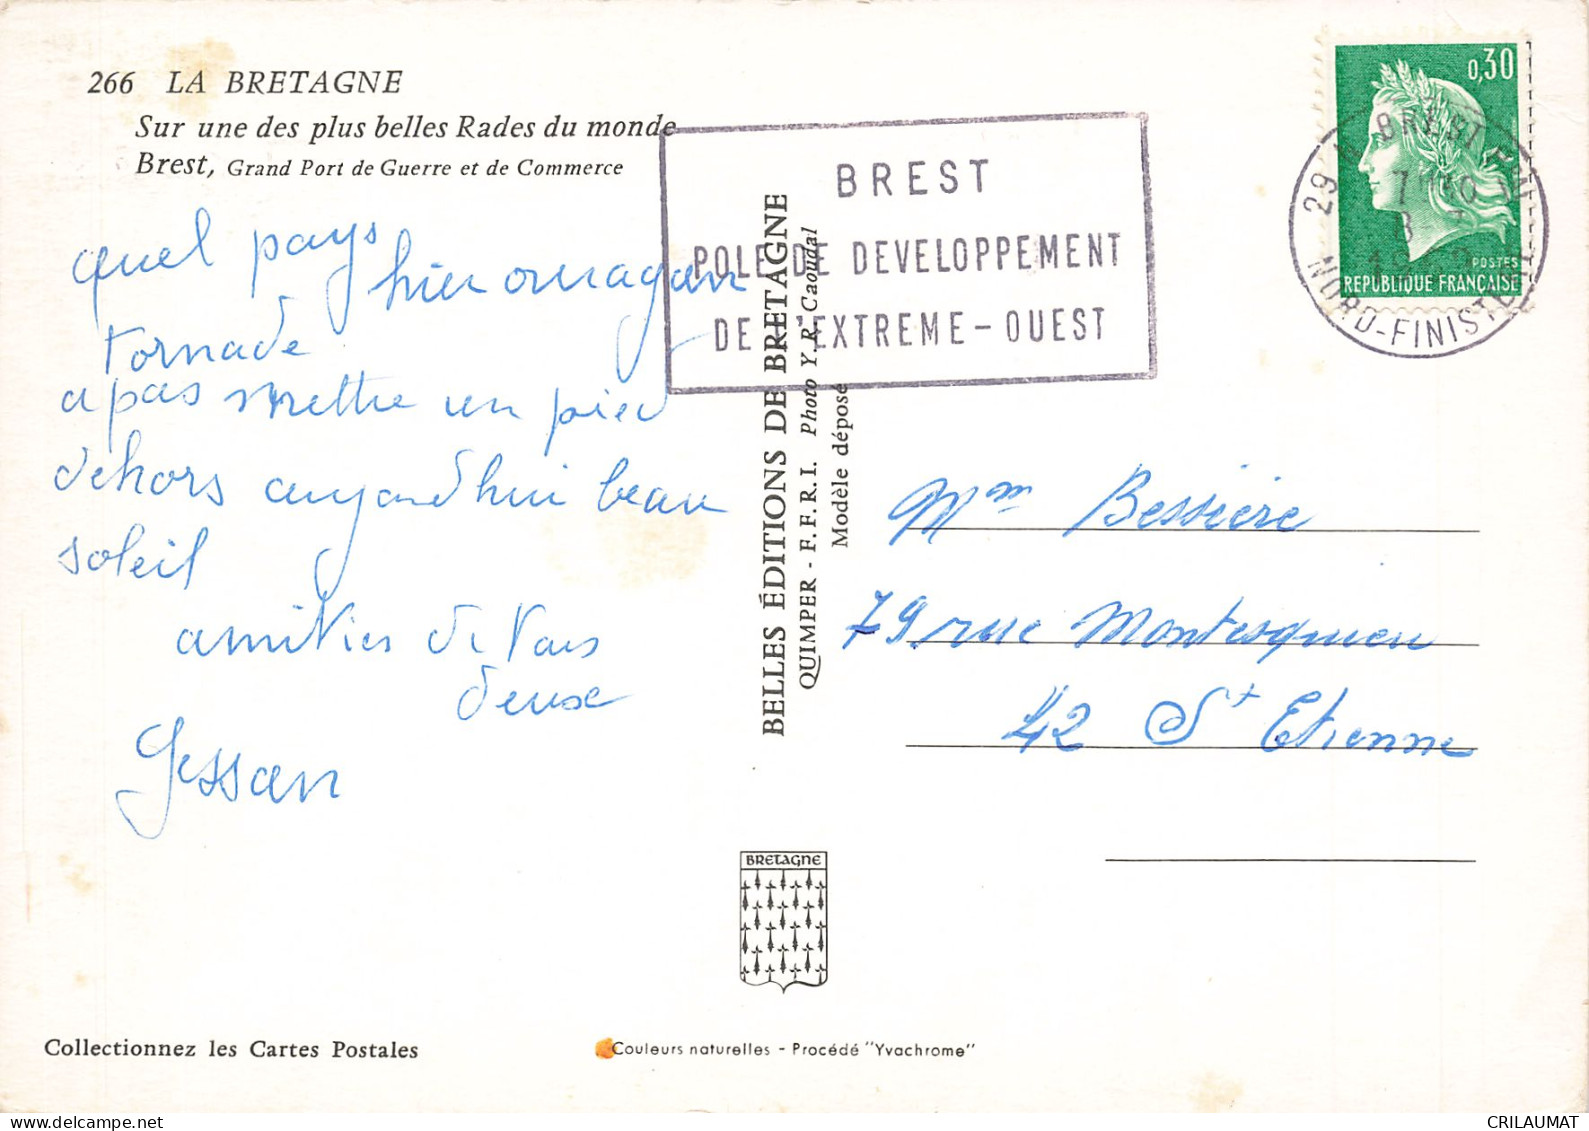 266 LA BRETAGNE
Sur une des plus belles Rades du monde
Brest, Grand Port de Guerre et de Commerce
quel pays hier ouragan
tornade
a pas mettre un pied
dehors aujourd'hui beau
soleil
amitiés à tous
deux
Gessan
BREST
POLE DE DEVELOPPEMENT
DE L'EXTREME-OUEST
BELLES ÉDITIONS DE BRETAGNE
QUIMPER - F.F.R.I. Photo Y.R. Caoudal
Modèle déposé
0,30
POSTES
REPUBLIQUE FRANÇAISE
29 N BREST
NORD-FINISTERE
Mme Bessière
79 rue Montesquieu
42 St Etienne
BRETAGNE
Collectionnez les Cartes Postales
Couleurs naturelles - Procédé "Yvachrome"
CRILAUMAT